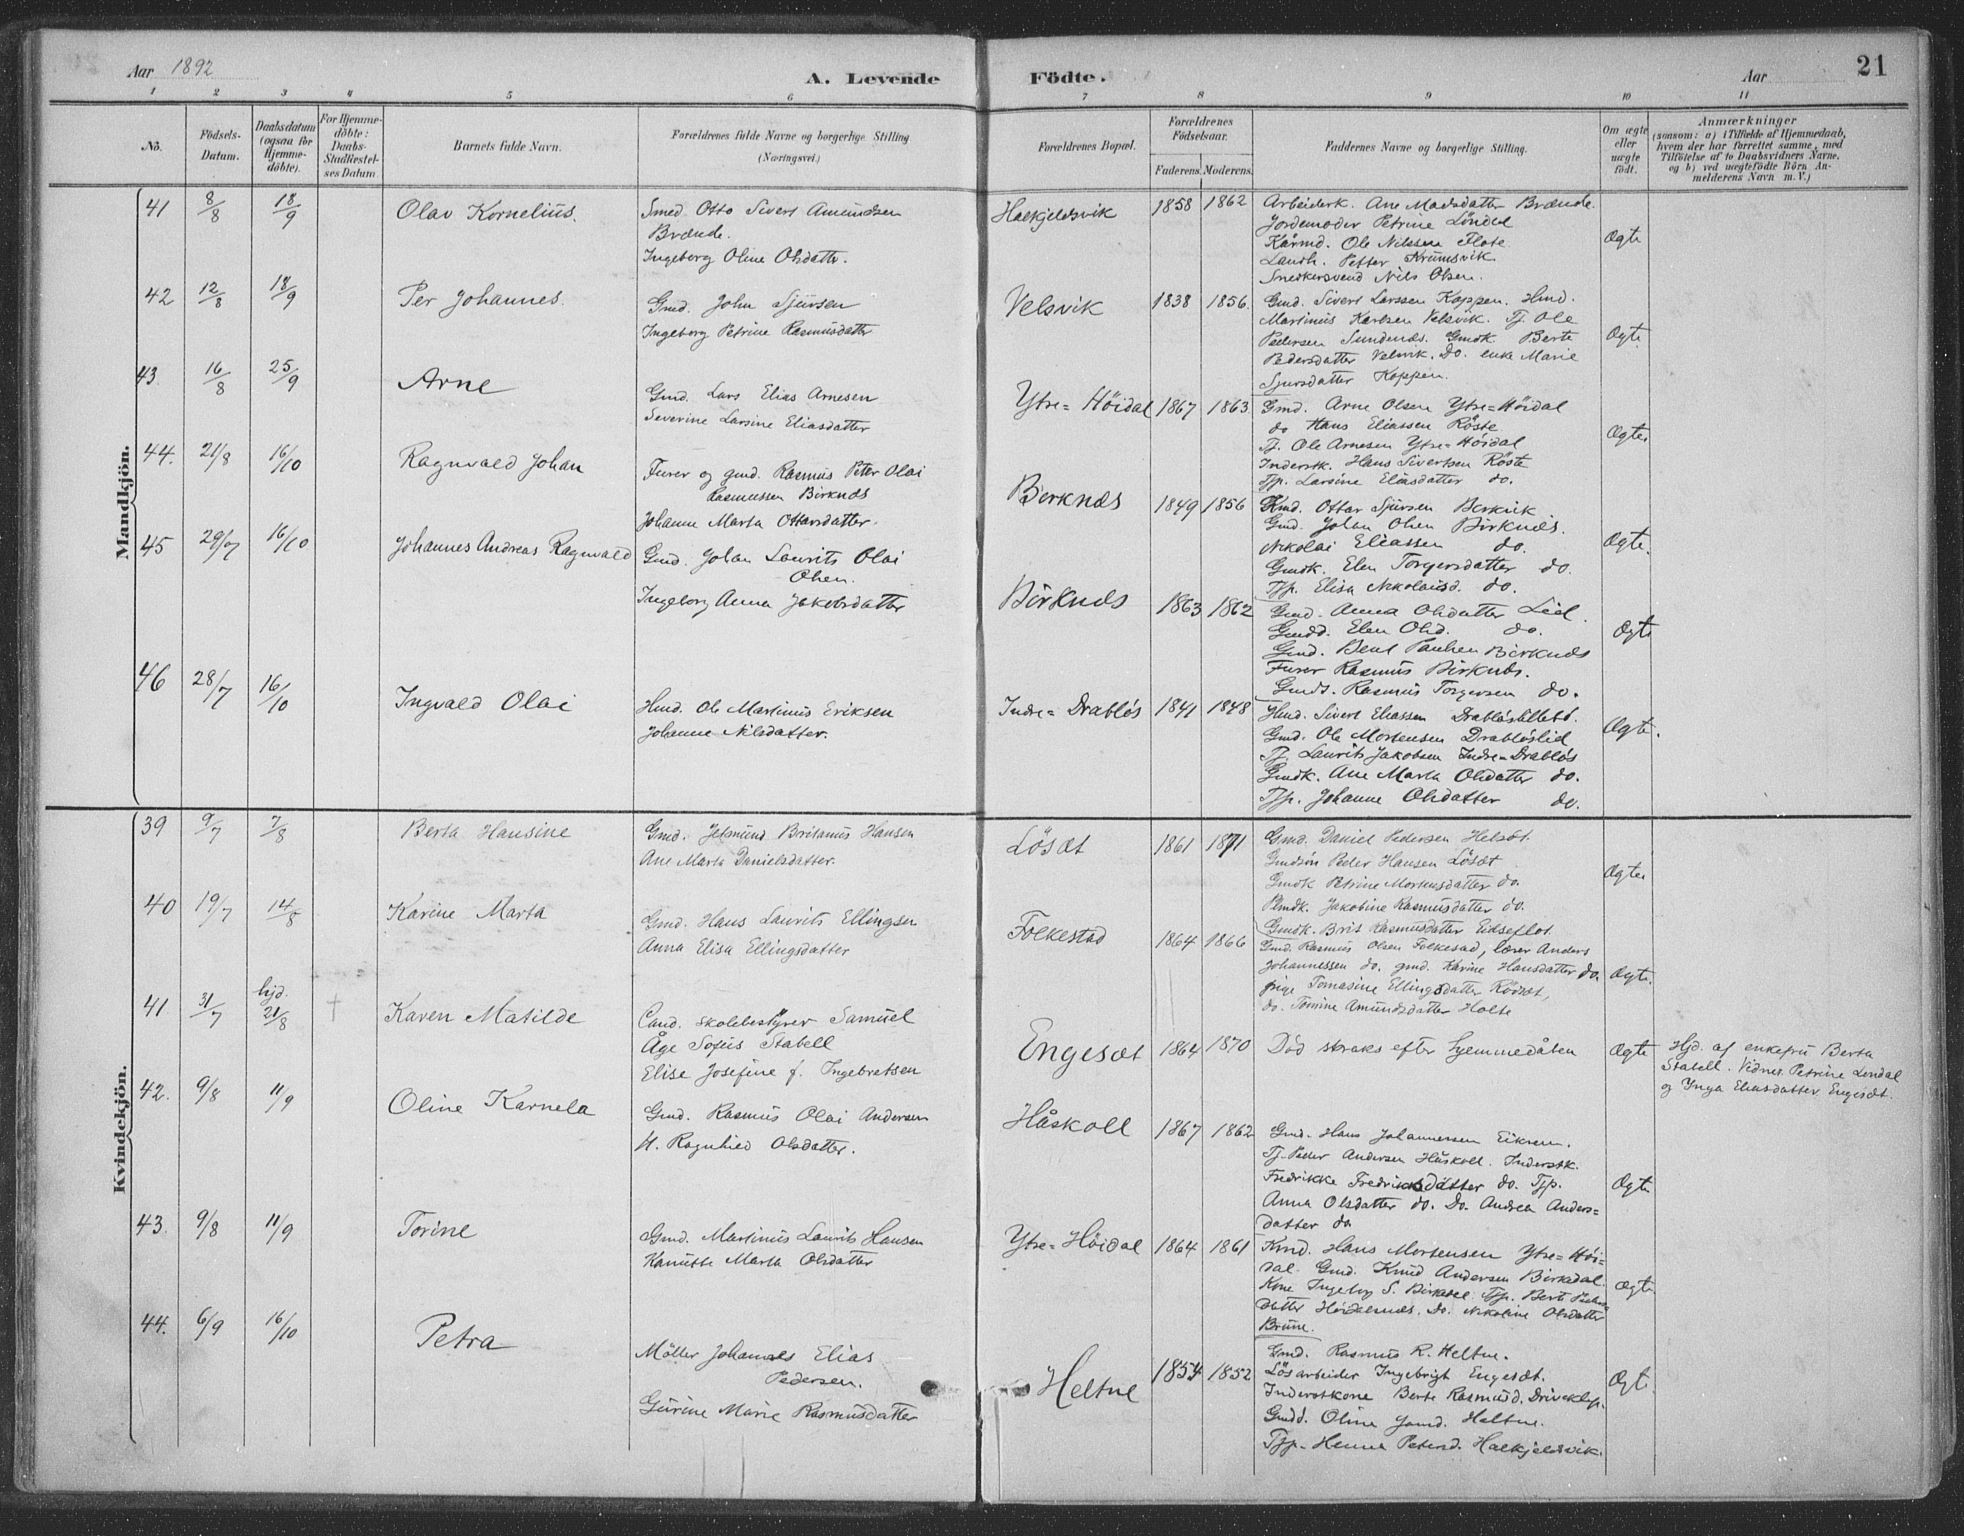 Aar 1892
A. Levende
Födte.
Aar
21
1 2 3 4 5 6 7 8 9 10 11
No.
Födsels-
Datum.
Daabsdatum
(ogsaa for
Hjemme-
döbte).
For Hjemme-
döbte:
Daabs-
Stadfæstel-
ses Datum.
Barnets fulde Navn.
Forældrenes fulde Navne og borgerlige Stilling
(Næringsvei.)
Forældrenes Bopæl.
Forældrenes
Födselsaar.
Faderens. Moderens.
Faddernes Navne og borgerlige Stilling.
Om ægte
eller
uægte
födt.
Anmærkninger
(saasom: a) i Tilfælde af Hjemmedaab,
hvem der har forrettet samme, med
Tilföielse af to Daabsvidners Navne.
og b) ved uægtefödte Börn An-
melderens Navn m. V.)
Mandkjön.
41 8/8 18/9 Olav Kornelius.
Smed. Otto Sivert Amundsen
Brænde.
Ingeborg Oline Olsdatter.
Halkjeldsvik 1858 1862
Arbeiderk. Ane Madsdatter Brænde.
Jordemoder Petrine Löndal
Kårmd. Ole Nilssen Flote
Landh. Petter Krumsvik
Snedkersvend Nils Olsen.
Ægte
42 12/8 18/9 Per Johannes.
Gmd. John Sjursen
Ingeborg Petrine Rasmusdatter
Velsvik 1838 1856.
Gmd. Sivert Larssen Koppen. Hmd.
Martinus Karlsen Velsvik. Tj. Ole
Pedersen Sundnæs. Gmdk Berte
Pedersdatter Velsvik. Do. enke Marie
Sjursdatter Koppen.
Ægte
43. 16/8 25/9 Arne
Gmd. Lars Elias Arnesen
Severine Larsine Eliasdatter
Ytre= Höidal 1867 1863
Gmd. Arne Olsen Ytre=Höidal
do Hans Eliassen Röste
Tj. Ole Arnesen Ytre=Höidal
Inderstk. Hans Sivertsen Röste
Tjp. Larsine Eliasdatter do.
Ægte
44. 21/8 16/10 Ragnvald Johan
Furer og gmd. Rasmus Peter Olai
Rasmussen Birknæs
Johanne Marta Ottarsdatter.
Birknæs 1849 1856
Kmd. Ottar Sjursen Berkvik
Gmd. Johan Olsen Birknæs.
Nikolai Eliassen do.
Gmdk. Elen Torgersdatter do.
Tjp. Elisa Nikolaisd. do.
Ægte.
45 29/7 16/10 Johannes Andreas Ragnvald
Gmd. Johan Laurits Olai
Olsen.
Ingeborg Anna Jakobsdatter
Birknæs 1863 1862
Gmd. Anna Olsdatter Lid.
Gmdd. Elen Olsd. do.
Gmd. Bent Paulsen Birknæs
Furer Rasmus Birknæs.
Gmds. Rasmus Torgersen do.
Ægte
46 28/7 16/10 Ingvald Olai
Hmd. Ole Martinus Eriksen
Johanne Nilsdatter.
Indre= Drabløs 1841 1848
Hmd. Sivert Eliassen
Gmd. Ole Mortensen Drabløslid
Tj. Laurits Jakobsen Indre=Drabløs
Gmdk. Ane Marta Olsdatter do.
Tjp. Johanne Olsdatter do.
Ægte.
Kvindekjön.
39 9/7 7/8 Berta Hansine
Gmd. Jetmund Britanus Hansen
Ane Marta Danielsdatter.
Lösæt 1861 1871
Gmd. Daniel Pedersen Helsæt.
Gmdsön Peder Hansen Lösæt
Gmdk Petrine Mortensdatter do.
Plmdk. Jakobine Rasmusdatter do.
Gmdk. Brit Rasmusdatter Eidseflot.
Ægte
40 19/7 14/8 Karine Marta
Gmd. Hans Laurits Ellingsen
Anna Elisa Ellingsdatter
Folkestad 1864 1866
Gmd. Rasmus Olsen Folkesad, lærer Anders
Johannessen do. gmd. Karine Hansdatter do.
pige Tomasine Ellingsdatter Rödsæt,
do. Tomine Amundsdatter Holte
Ægte.
41 31/7 hjd. 21/8 † Karen Matilde
Cand. skolebestyrer Samuel
Åge Sofus Stabell
Elise Josefine f. Ingebretsen
Engesæt 1864 1870
Död straks efter hjemmedåben
Ægte
Hjd. af enkefru Berta
Stabell. Vidner Petrine Lendal
og Inga Eliasdatter Engesæt.
42. 9/8 11/9 Oline Karnela
Gmd. Rasmus Olai Andersen
H. Ragnhild Olsdatter.
Håskoll 1867 1862
Gmd. Hans Johannessen Eikrem.
Tj. Peder Andersen Håskoll. Inderstk.
Fredrikke Fredriksdatter do. Tjp.
Anna Olsdatter do. Do. Andrea Anders=
datter do
Ægte
43. 9/8 11/9 Torine
Gmd. Martinus Laurits Hansen
Hanutte Marta Olsdatter
Ytre= Höidal 1864 1861
Kmd. Hans Mortensen Ytre=Höi-
dal. Gmd. Knud Andersen Birkedal.
Kone Ingeborg S. Tjp. Berte Peders=
datter Höidalsnæs. Do. Nikoline Olsdatter
Brune.
Ægte
44. 6/9 16/10 Petra
Möller Johannes Elias
Pedersen.
Gurine Marie Rasmusdatter
Heltne 1854 1852
Gmd. Rasmus R. Heltne.
Lösarbeider Ingebrigt Engesæt.
Inderstkone Berte Rasmusd. Driveklep.
Gmdd. Oline Heltne.
Tjp. Hanna Petersd. Halkjeldsvik.
Ægte.